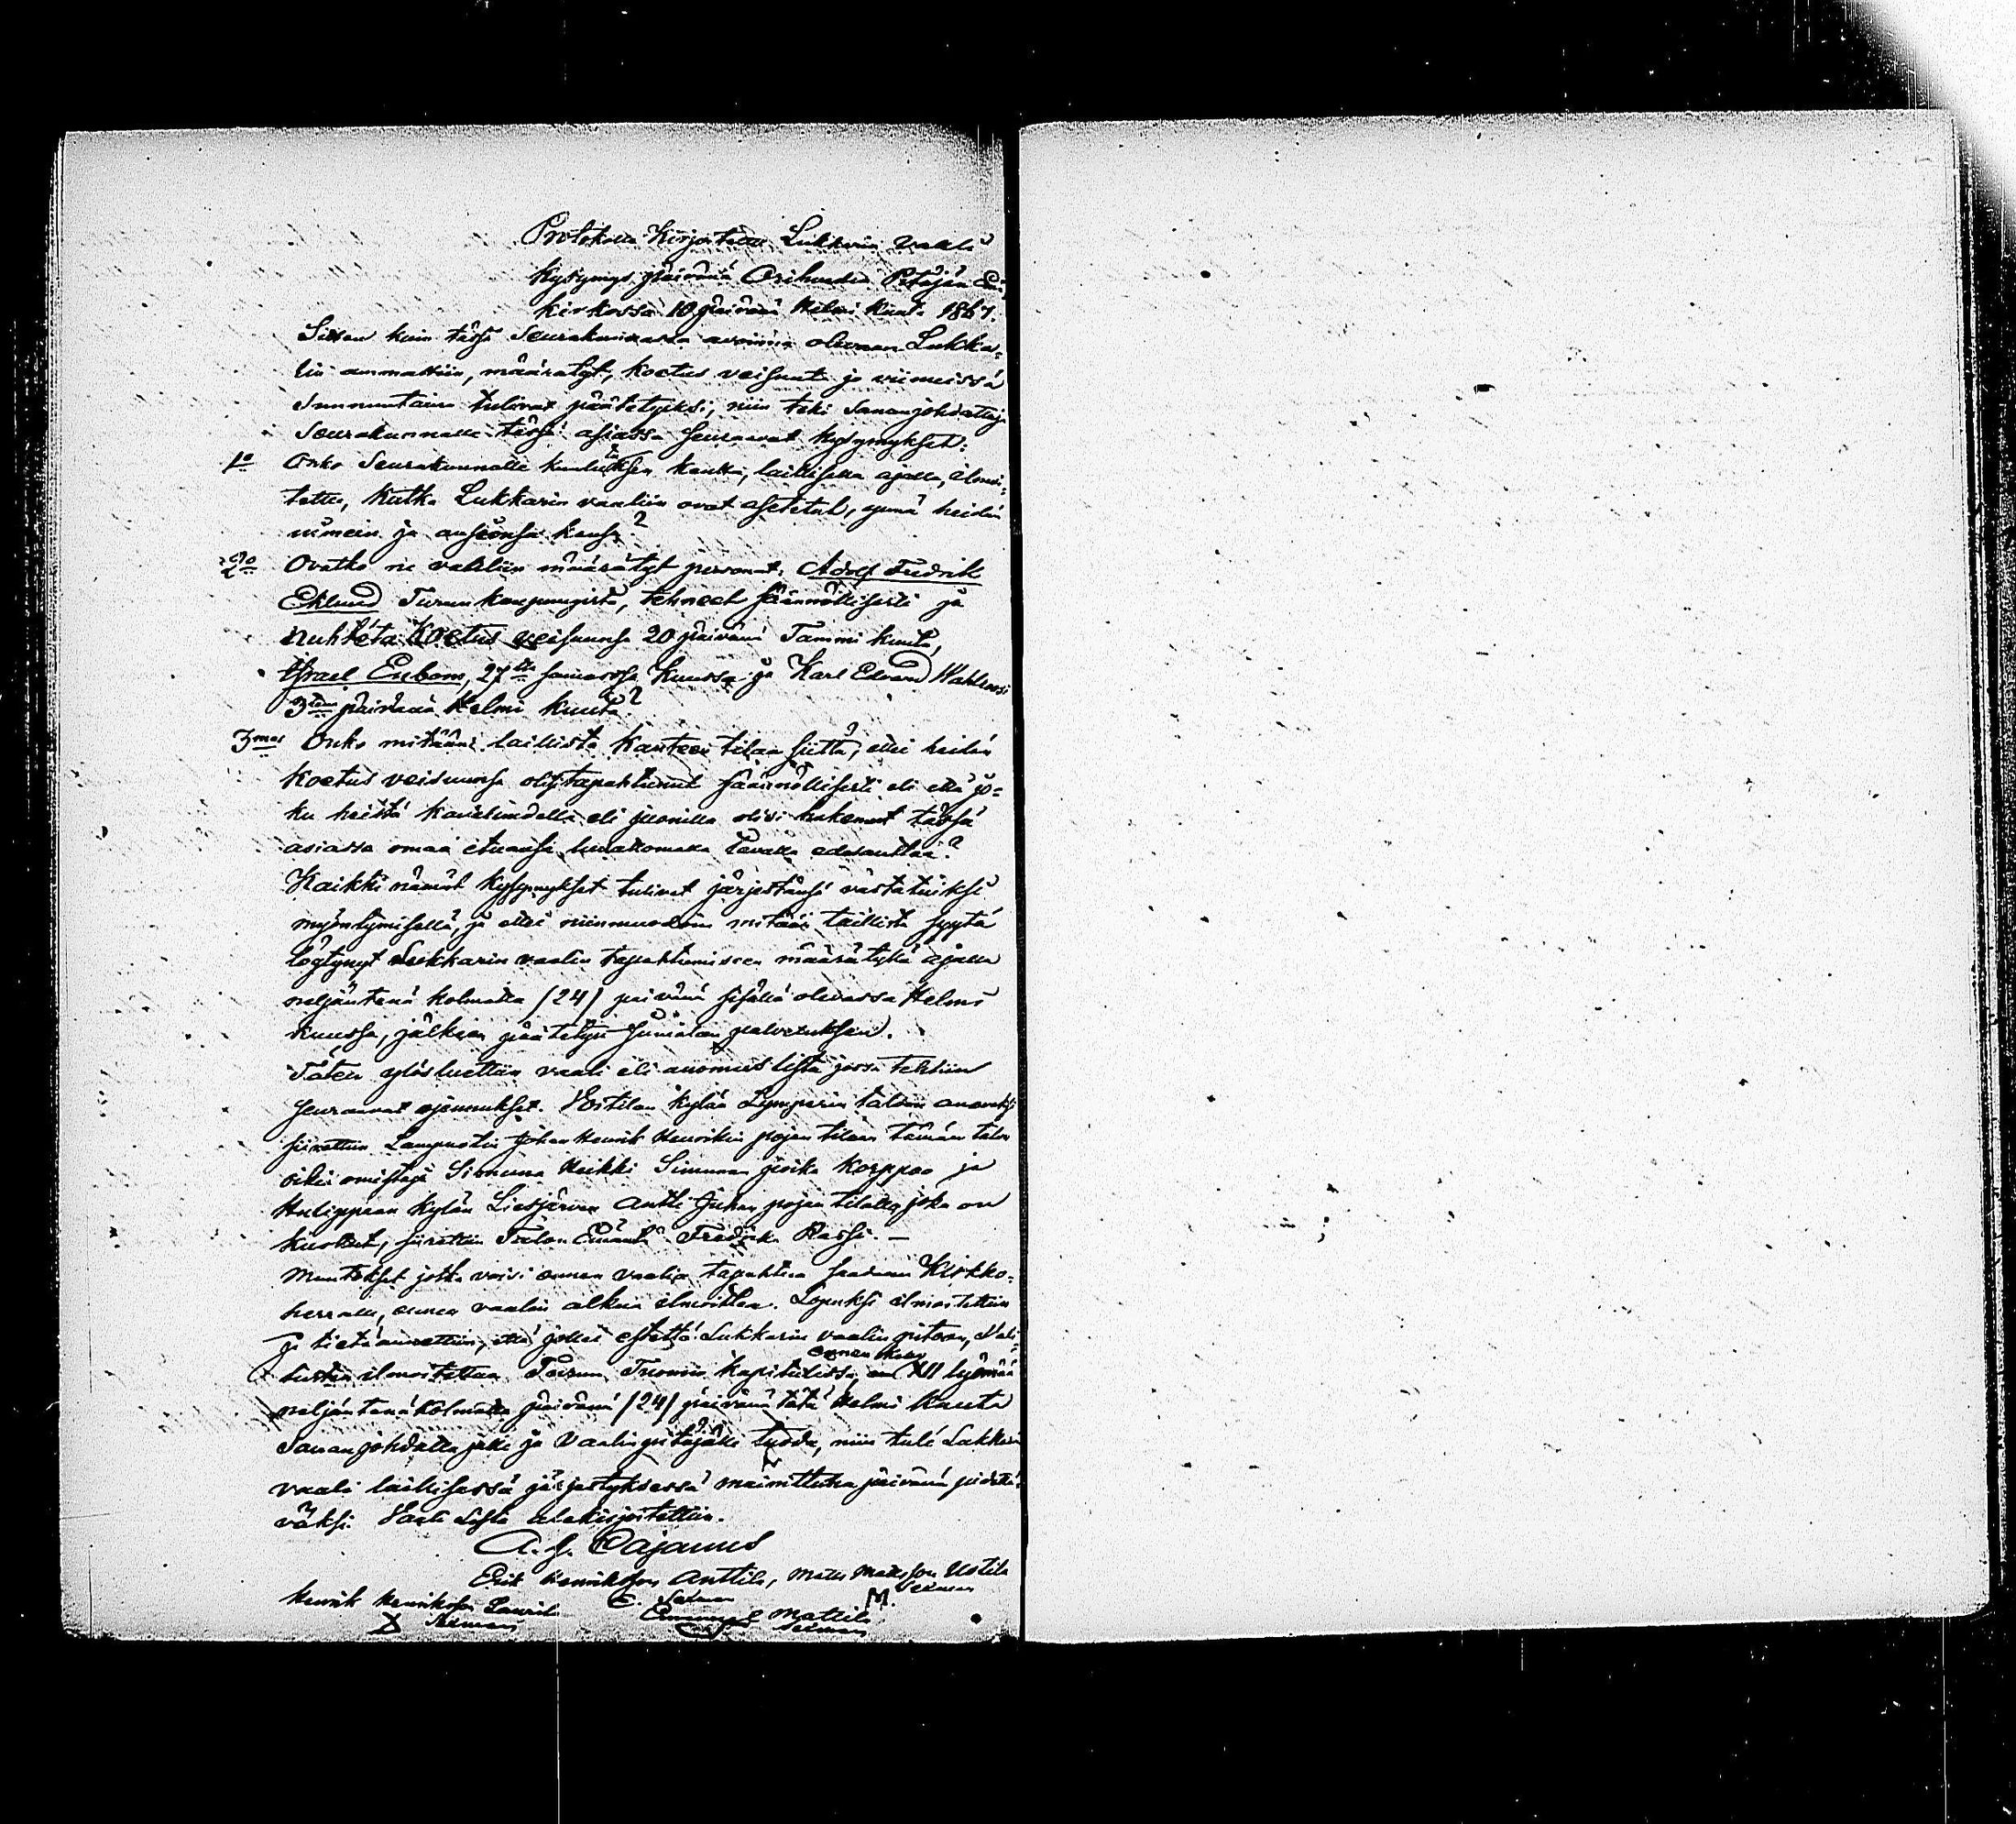 Protokolla Kirjoitettu Lukkarin vaali
kysymys päivänä Orihveden Pitäjän Emä
kirkossa 10 päivänä Helmi Kuuta 1867.
Sitten kuin tässä Seurakunnassa avoinna olevaan Lukka-
rin ammattiin, määrätyt, koetus veisuut jo viimeissä
Sunnuntaina tulivat päätetyiksi, niin teki Sananjohdattaja
Seurakunnalle tässä asiassa seuraavat kysymykset:
1o Onko Seurakunnalle kuulutuksen kautta, laillisella ajalla, ilmoi-
tettu, kutka Lukkarin vaaliin ovat asetetut, ynnä heidän
nimein ja ansionsa kanssa?
2do Ovatko ne vaaliin määrätyt personat: Adolf Fredrik
Eklund Turun kaupungista, tehneet säännöllisesti ja
nuhteta koetus veisuunsa 20 päivänä Tammi kuuta,
Israel Enbom, 27 samassa Kuussa ja Karl Edvard Wahlroos
3 päivänä Helmi kuuta?
3mas Onko mitään laillista kanteen tilaa siitä, ettei heidän
koetus veisuunsa olisi tapahtunut säännöllisesti eli että jo-
ku heistä kavaluudella eli juonilla olisi hakenut tässä
asiassa omaa etuansa luvattomalla tavalla edesauttaa?
Kaikki nämät kysymykset tulivat järjestänsä vastatuiksi
myöntymisellä, ja ettei niinmuodoin mitään laillista syytä
löytynyt Lukkarin vaalin tapahtumiseen määrätyllä ajalla
neljäntenä kolmatta (24) päivänä sisällä olevassa Helmi
kuussa, jälkeen päätetyn Jumalan palveluksen.
Täten ylösluettiin vaali eli anomus lista jossa tehtiin
seuraavat ojennukset. Wäitilan kylän Lymperin talon
siirettiin Lampuotin Johan Henrik Henrikin pojan tilaan tämän talon
oikia omistaja Simuna Heikki Simunan poika Korppoo ja
kylän Liesjärven Antti Juhan pojan tilalla, joka on
kuollut, siirettiin Talon Emäntä Fredrika Rassi. -
Muutokset jotka voisi ennen vaalia tapahtua saadaan Kirkko-
herralle, ennen vaalin alkua ilmoittaa. Lopuksi ilmoitettiin
ja tietä annettiin, että jollei estettä Lukkarin vaalin pitoon,
ilmoitettaa Turun Tuomio kapitulissa, ennen kello XII lyömää
neljäntenä kolmatta päivänä (24) päivänä tätä Helmi kuuta
Sananjohdattajalle ja Vaalin pitäjälle tuoda, niin tule Lukkarin
vaali laillisessa järjestyksessä mainittuna päivänä pidettä-
väksi. Vaali Lista alakirjoitettiin.
A. J. Cajanus
Erik Henriksson Anttila, Matts Mattsson Uotila
Henrik Henriksson Laurila
Emanuel Mattila